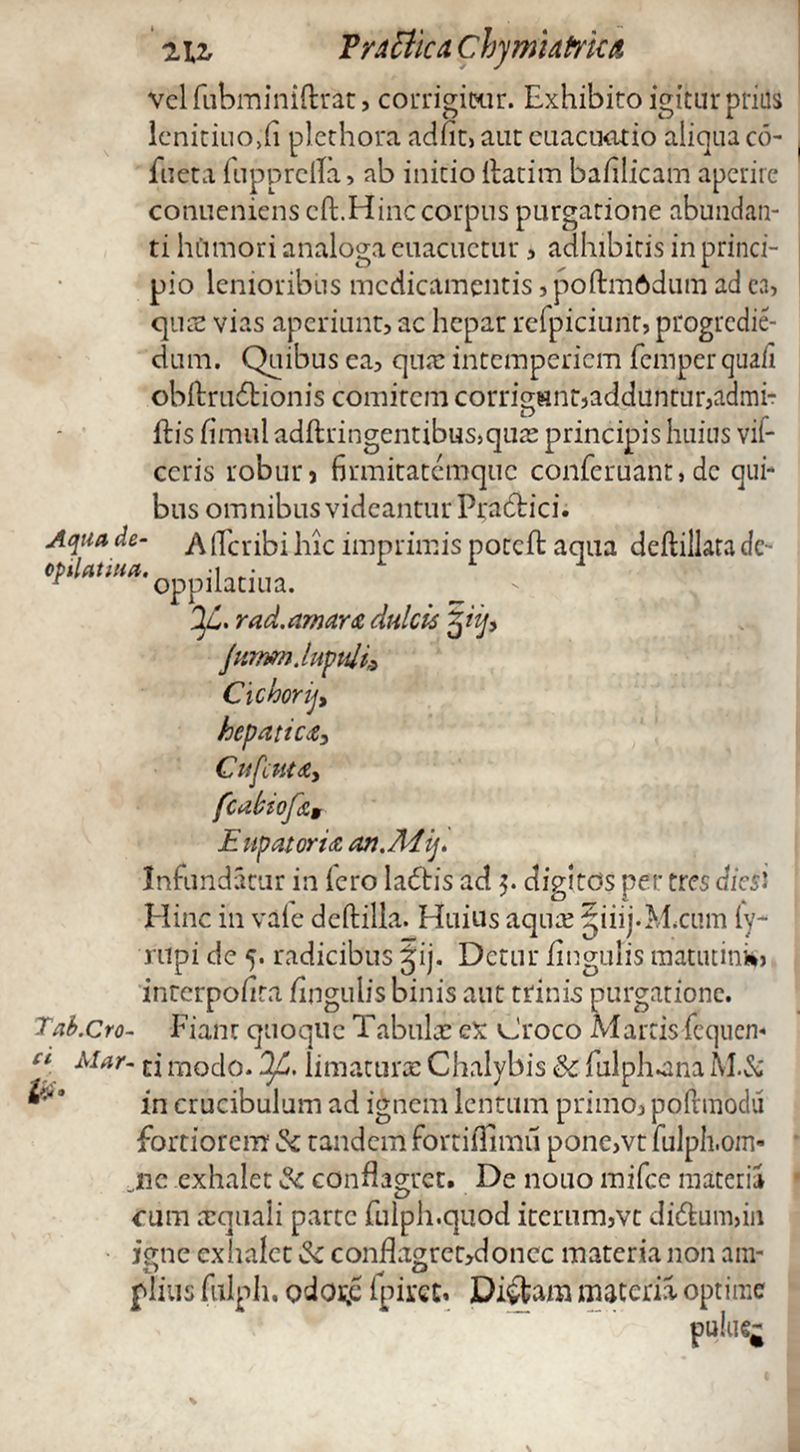 212 Practica Chymiatrica
vel subministrat, corrigitur. Exhibito igitur prius
lenitiuo, si plethora adsit, aut euacuatio aliqua cō-
sueta suppressa, ab initio statim basilicam aperire
conueniens est. Hinc corpus purgatione abundan-
ti humori analoga euacuetur, adhibitis in princi-
pio lenioribus medicamentis, postmódum ad ea,
quæ vias aperiunt, ac hepar respiciunt, progrediē-
dum. Quibus ea, quæ intemperiem semper quasi
obstructionis comitem corrigunt, adduntur, admi-
stis simul adstringentibus, quæ principis huius vis-
ceris robur, firmitatémque conseruant, de qui-
bus omnibus videantur Practici.
Aqua de-
opilatiua.
Ascribi hîc imprimis potest aqua destillata de-
oppilatiua.
℞. rad. amaræ dulcis ℥iij,
summ. lupuli,
Cichorij,
hepaticæ,
Cuscutæ,
scabiosæ,
Eupatoriæ an. Mij.
Infundatur in sero lactis ad 3. digitos per tres dies:
Hinc in vase destilla. Huius aquæ ℥iiij. M. cum sy-
rupi de 5. radicibus ℥ij. Detur singulis matutinis,
interposita singulis binis aut trinis purgatione.
Tab. Cro-
ci Mar-
tis.
Fiant quoque Tabulæ ex Croco Martis sequen-
ti modo. ℞. limaturæ Chalybis & sulph. ana M. &
in crucibulum ad ignem lentum primo, postmodū
fortiorem & tandem fortissimū pone, vt sulph. om-
ne exhalet & conflagret. De nouo misce materiā
cum æquali parte sulph. quod iterum, vt dictum, in
igne exhalet & conflagret, donec materia non am-
plius sulph. odorē spiret. Dictam materiā optime
pulue-